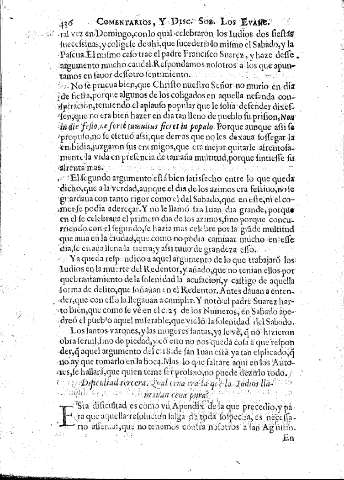 436 COMENTARIOS, Y DISC. SOB. LOS EVANG.
tal vez en Domingo, con lo qual celebraron los Iudios dos fiestas
succesivas, y colige le de ahi, que sucediò lo mismo el Sabado, y la
Pascua. El mismo caso trae el padre Francisco Suarez, y haze desse
argumento mucho caudal. Respondamos nosotros a los que apun-
tamos en favor de nuestro sentimiento.
No se prueva bien, que Christo nuestro Señor no murio en dia
de fiesta, porque algunos de los coligados en aquella nefanda cons-
piracion, temiendo el aplauso popular que le solia defender dixes-
sen, que no era bien hazer en dia tan lleno de pueblo su prision, Non
in die festo, ne forte tumultus fieret in populo. Porque aunque assi se
propuso, no se efetuò assi, que demas que no les dexava sossegar la
embidia, juzgaron sus enemigos, que era mejor quitarle afrentosa-
mente la vida en presencia de tanta multitud, porque sintiesse su
afrenta mas.
El segundo argumento està bien satisfecho entre lo que queda
dicho, que a la verdad, aunque el dia de los azimos era festivo, no se
guardava con tanto rigor como el del Sabado, que en este, ni el co-
mer se podia adereçar. Y no le llamò sa Iuan dia grande, porque
en el se celebrava el primero dia de los azimos, sino porque concu-
rriendo con el segundo, se hazia mas celebre por la gràde multitud
que avia en la ciudad, que como no podia caminar mucho en esse
dia, se estava llena la tierra, y assi tuvo de grandeza esso.
Ya queda respondido a aquel argumento de lo que trabajarõ los
Iudios en la muerte del Redentor, y añado, que no tenian ellos por
quebrantamiento de la solenidad la acusacion, y castigo de aquella
forma de delito, que soñavan en el Redentor. Antes davan a enten-
der, que con esso lo llegavan a cumplir. Y notò el padre Suarez har-
to bien, que como se vè en el c. 25. de los Numeros, en Sabado ape-
dreò el pueblo aquel miserable, que violò la solenidad del Sabado.
Los santos varones, y las mugeres santas, ya se vè, q̃ no hizieron
obra servil, sino de piedad, y cõ esto no nos queda cosa a que respon-
der, q̃ aquel argumento del c. 18. de san Iuan està ya tan esplicado, q̃
no ay que tomarlo en la boca. Mas lo que faltare aqui en los Auto-
res, se hallarà, que quien teme ser prolixo, no puede dezirlo todo.
Dificultad tercera. Qual cena era la que los Iudios lla-
mavan cena pura?
ESta dificultad es como vn Apendix de la que precediò, y pa-
ra que aquella resolucion salga de toda sospecha, es necessa-
rio assentar, que no tenemos contra nosotros a san Agustin.
En